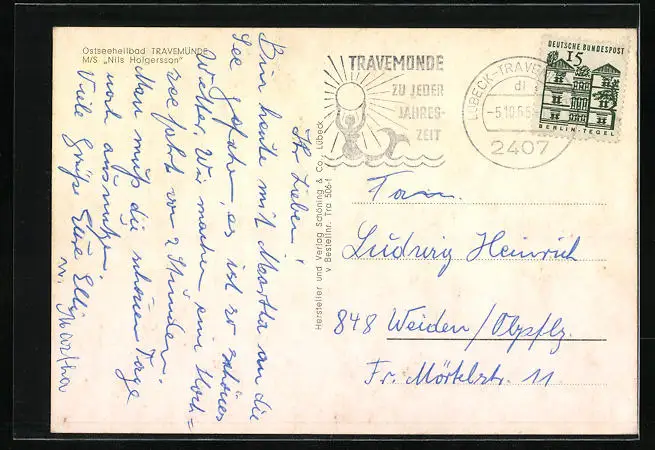 Ostseeheilbad TRAVEMÜNDE
M/S „Nils Holgersson“
Ihr Lieben!
Bin heute mit Martha an die
See gefahren, es ist so schönes
Wetter. Wir machen eine Hoch=
see fahrt von 2 Stunden.
Man muß die schönen Tage
noch ausnutzen.
Viele Grüße Eure Elli
u. Martha
Hersteller und Verlag Schöning & Co., Lübeck
Bestellnr. Tra 506
TRAVEMÜNDE
ZU JEDER
JAHRES-
ZEIT
LÜBECK-TRAVE
dl
-5.10.6
2407
DEUTSCHE BUNDESPOST
15
BERLIN-TEGEL
Fam.
Ludwig Heinrich
848 Weiden/Obpflz.
Fr. Mörtelstr. 11